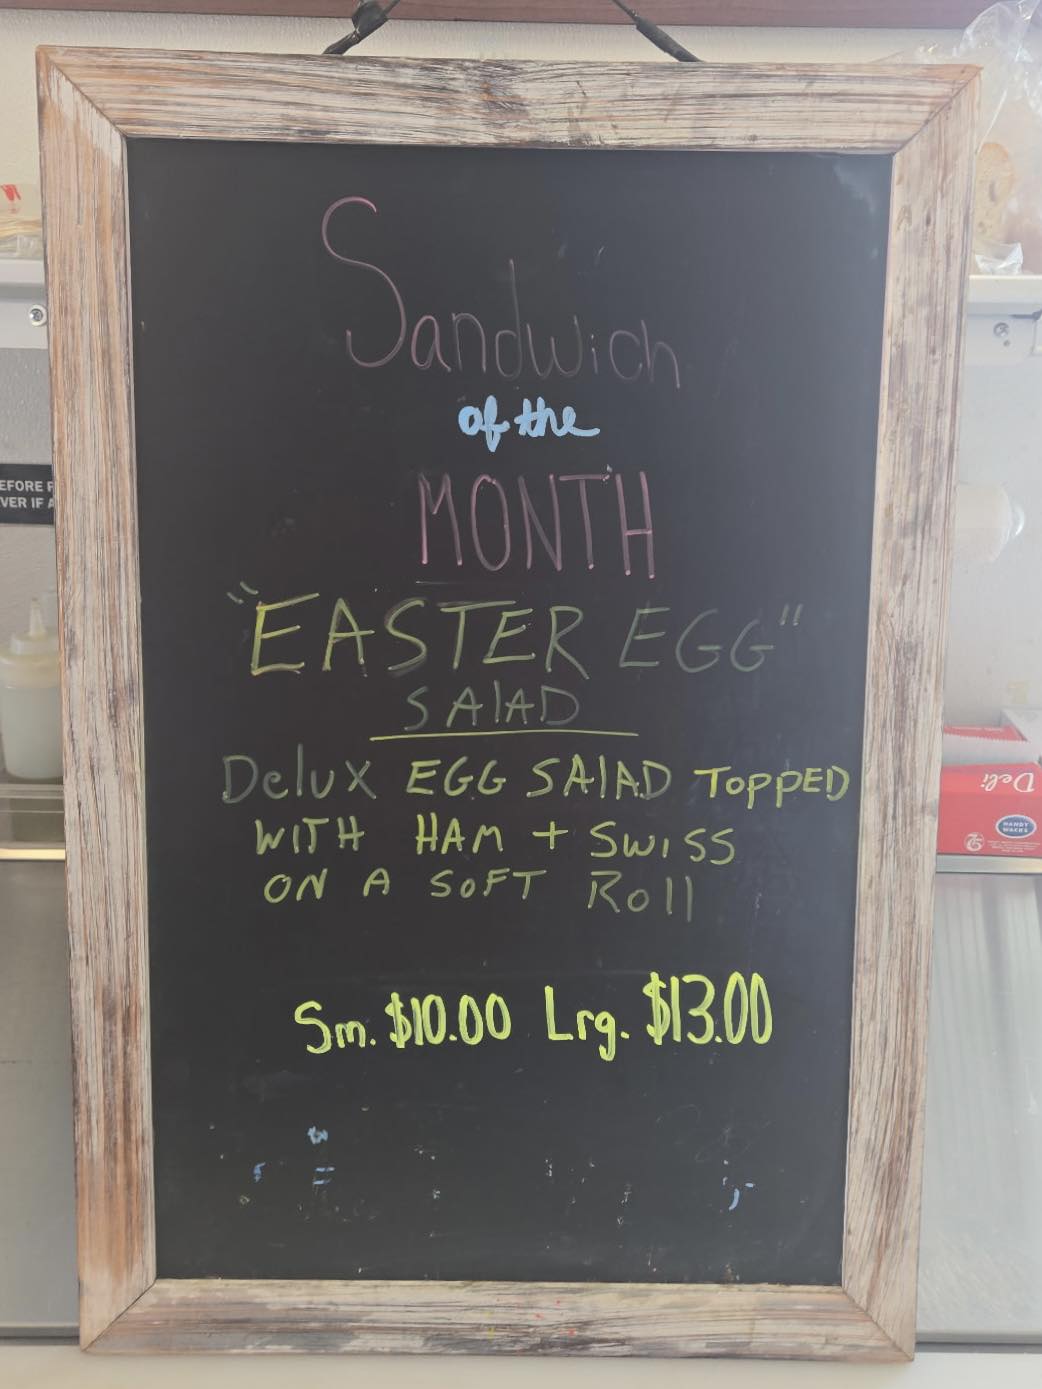 Sandwich
of the
MONTH
"EASTER EGG"
SALAD
Delux EGG SALAD TOPPED
WITH HAM + SWISS
ON A SOFT Roll
Sm. $10.00 Lrg. $13.00
EFORE
VER IF A
Deli
HANDY
WACKS